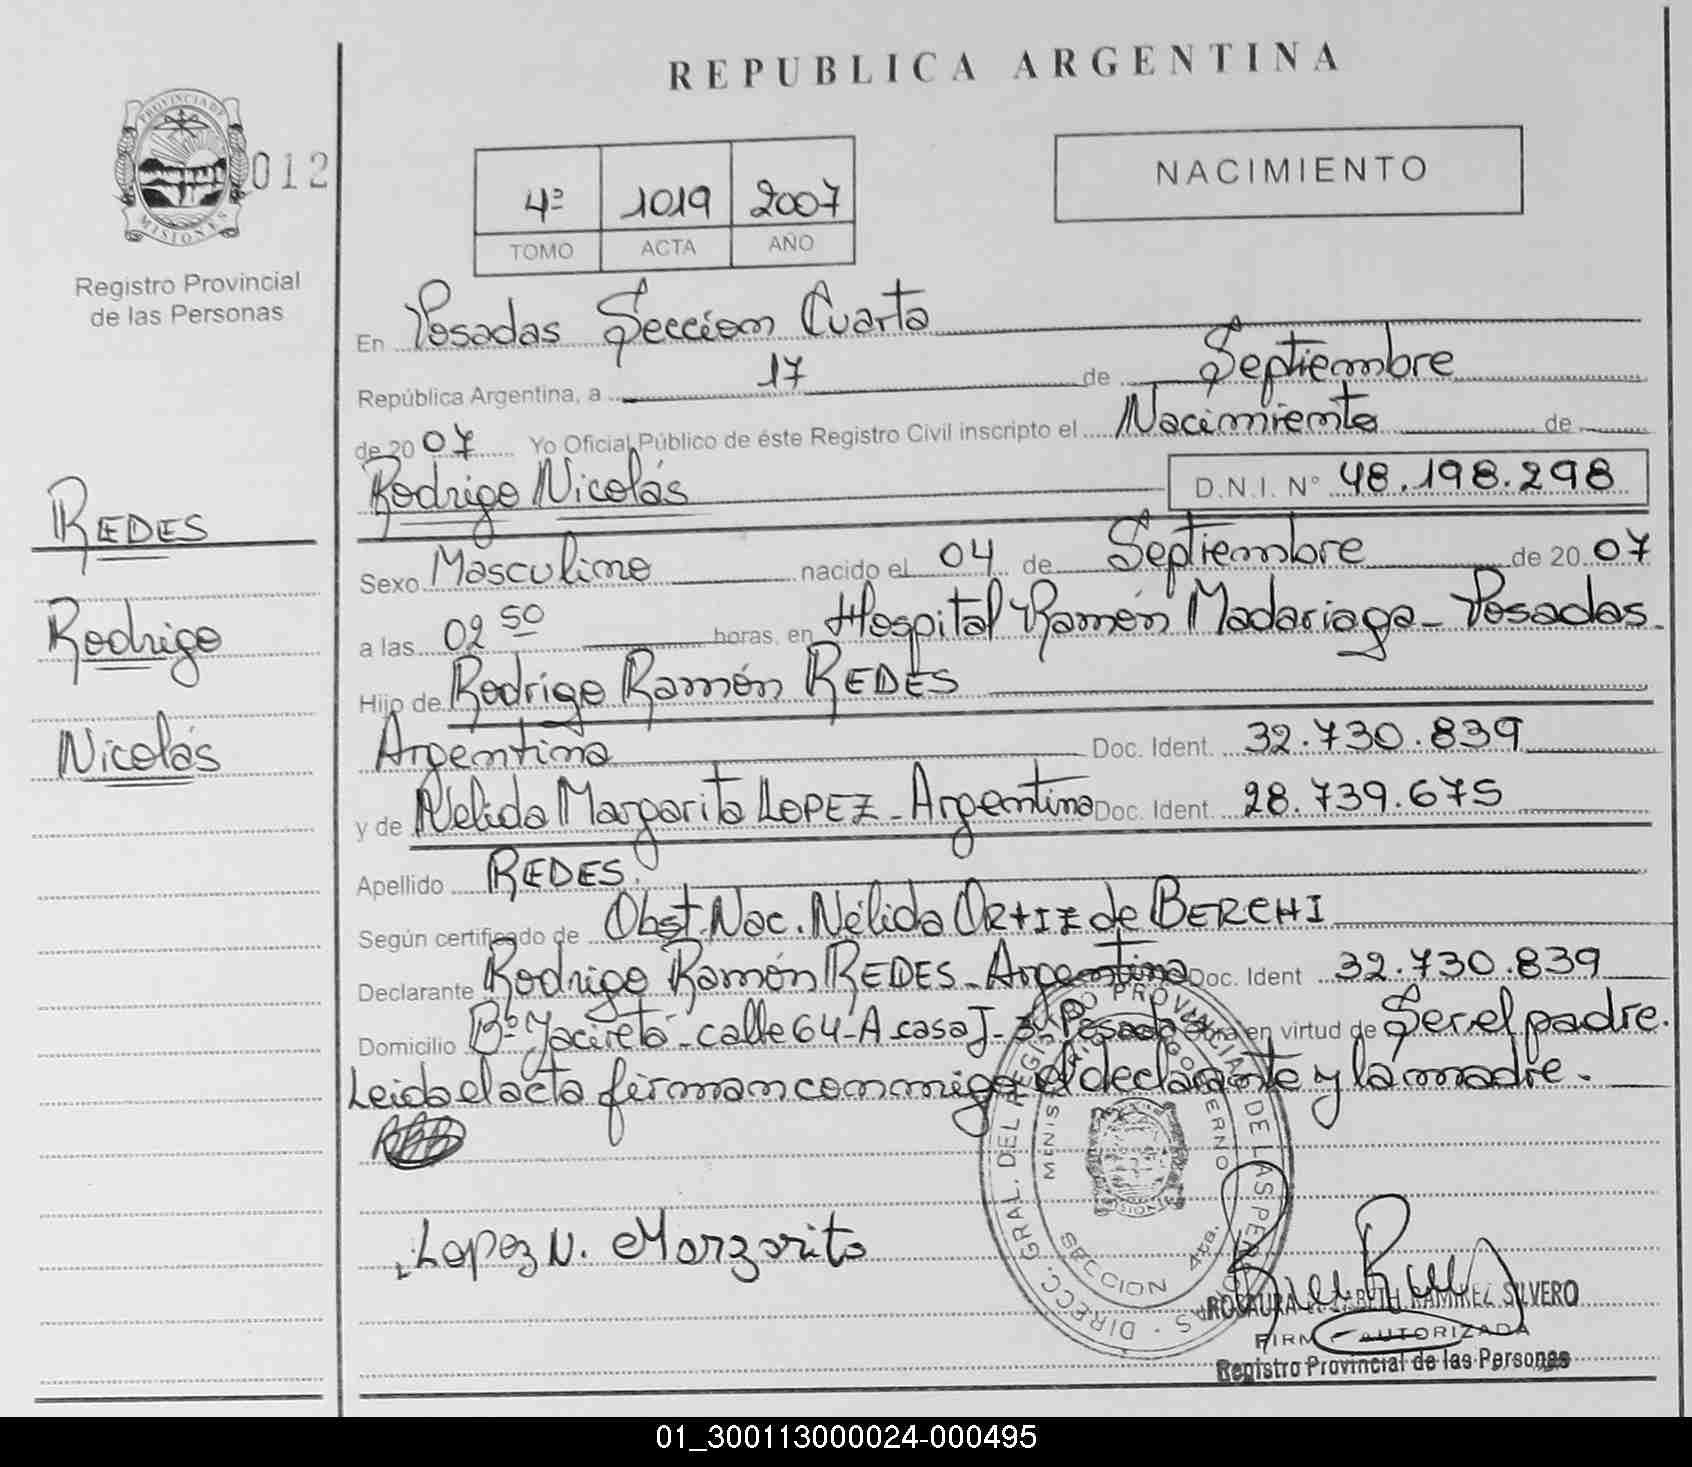 REPUBLICA ARGENTINA
PROVINCIA DE
MISIONES
012
Registro Provincial
de las Personas
4º 1019 2007
TOMO ACTA AÑO
NACIMIENTO
En Posadas Seccion Cuarta
República Argentina, a 17 de Septiembre
de 2007 Yo Oficial Público de éste Registro Civil inscripto el Nacimiento de
Rodrigo Nicolás D.N.I. Nº 48.198.298
REDES
Rodrigo
Nicolás
Sexo Masculino nacido el 04 de Septiembre de 2007
a las 02 50 horas, en Hospital Ramón Madariaga - Posadas.
Hijo de Rodrigo Ramón REDES
Argentina Doc. Ident. 32.730.839
y de Nelida Margarita LOPEZ - Argentina Doc. Ident. 28.739.675
Apellido REDES.
Según certificado de Obst. Nac. Nélida ORTIZ de BERCHI
Declarante Rodrigo Ramón REDES - Argentina Doc. Ident 32.730.839
Domicilio Bº Yacireta - calle 64-A casa J- Posadas en virtud de Ser el padre.
Leida el acta firman conmigo el declarante y la madre.
Lopez N. Margarita
DIRECC. GRAL. DEL REGISTRO PROVINCIAL DE LAS PERSONAS
GOBIERNO
SECCION 4ta.
ROSAURA RAMIREZ SILVERO
FIRMA AUTORIZADA
Registro Provincial de las Personas
01_300113000024-000495